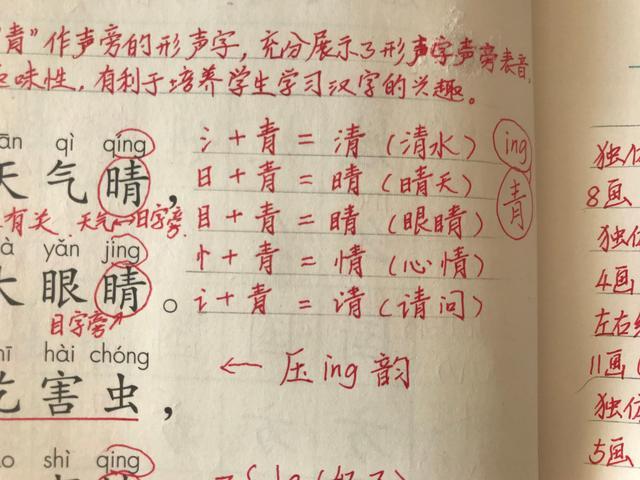 "青"作声旁的形声字,充分展示了形声字声旁表音,
味性,有利于培养学生学习汉字的兴趣。
qì qíng
天气晴,
氵+青=清(清水)
日+青=晴(晴天)
目+青=睛(眼睛)
忄+青=情(心情)
讠+青=请(请问)
ing
青
有关 天气 日字旁
yǎn jing
大眼睛。
目字旁
hài chóng
吃害虫,
← 压ing韵
shì qing
独
8画
独
4画
左右
11画
独
5画